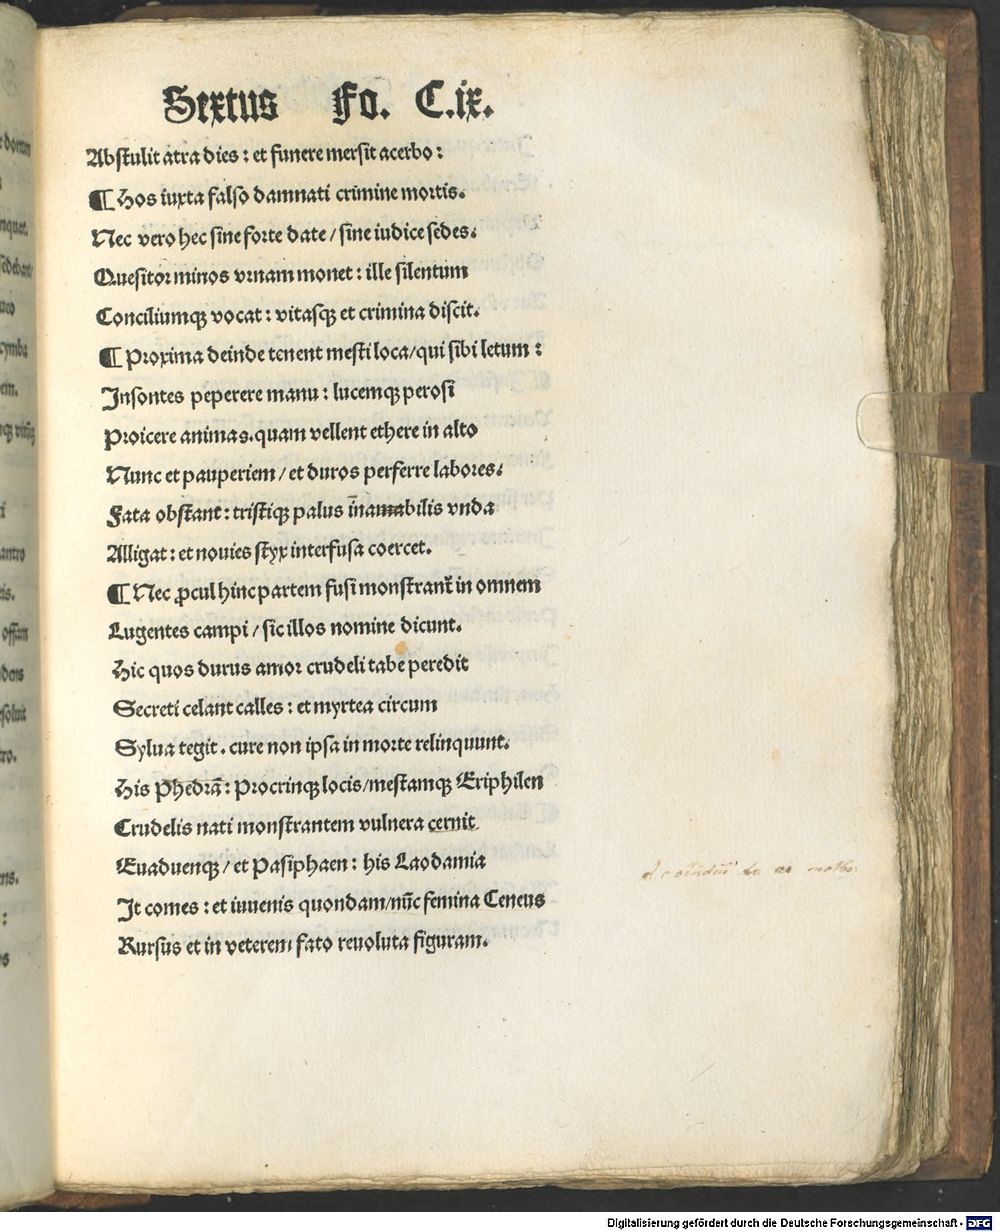 Sextus Fo. C.ix.
Abstulit atra dies : et funere mersit acerbo :
¶ Hos iuxta falso damnati crimine mortis.
Nec vero hec sine forte date / sine iudice sedes.
Quesitor minos vrnam monet : ille silentum
Conciliumqꝫ vocat : vitasqꝫ et crimina discit.
¶ Proxima deinde tenent mesti loca / qui sibi letum :
Insontes peperere manu : lucemqꝫ perosi
Proicere animas. quam vellent ethere in alto
Nunc et pauperiem / et duros perferre labores.
Fata obstant : tristiqꝫ palus īnamabilis vnda
Alligat : et nouies styx interfusa coercet.
¶ Nec ꝓcul hinc partem fusi monstrant̄ in omnem
Lugentes campi / sic illos nomine dicunt.
Hic quos durus amor crudeli tabe peredit
Secreti celant calles : et myrtea circum
Sylua tegit. cure non ipsa in morte relinquunt.
His Phedrā : Procrinqꝫ locis / mestamqꝫ Eriphilen
Crudelis nati monstrantem vulnera cernit
Euaduenqꝫ / et Pasiphaen : his Laodamia
It comes : et iuvenis quondam / nūc femina Ceneus
Rursus et in veterem fato reuoluta figuram.
Digitalisierung gefördert durch die Deutsche Forschungsgemeinschaft - DFG